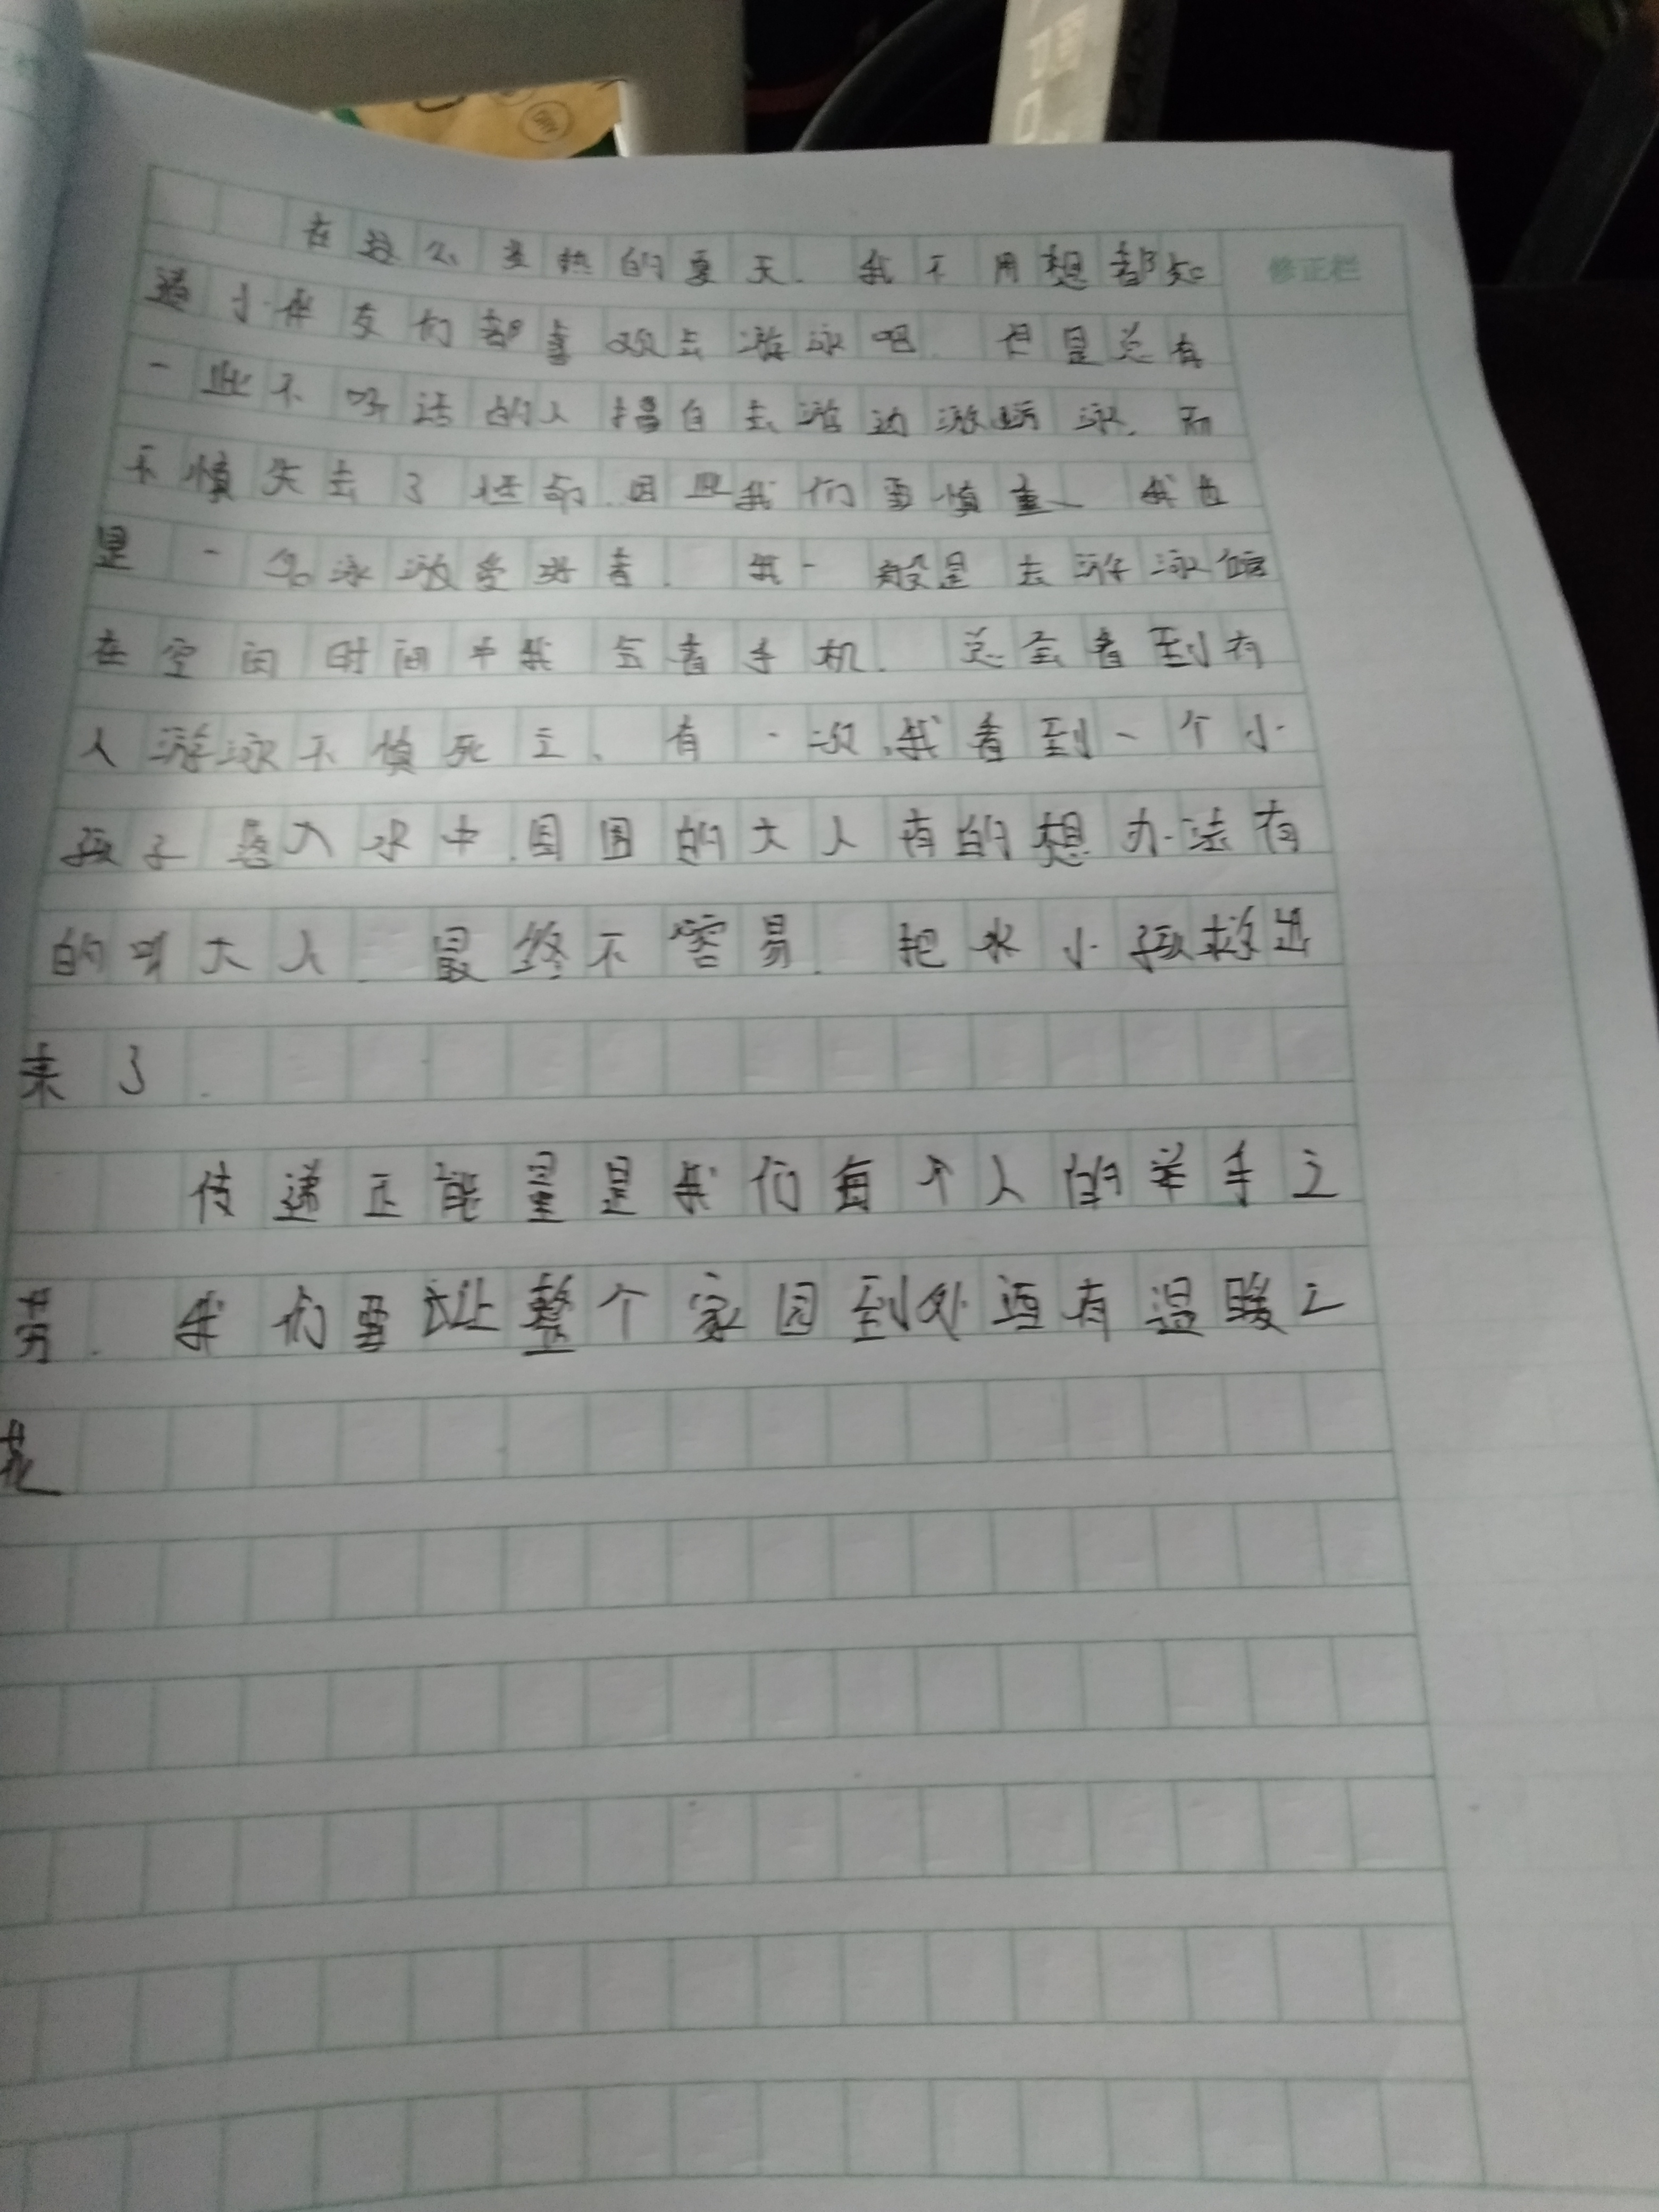 在这么炎热的夏天.我不用想都知
修正栏
道小伙友们都喜欢去游泳吧.但是总有
一些不听话的人擅自去 泳.而
不慎失去了性命.因此我们要慎重、我也
是一名泳游爱好者.我一般是去游泳馆
在空闲时间中我 看手机.总会看到有
人游泳不慎死亡、有一次.我看到一个小
孩子落入水中.周围的大人有的想办法有
的叫大人.最终不容易.把水小孩救出
来了.
传递正能量是我们每个人的举手之
劳.我们要让整个家园到处 有温暖之
花